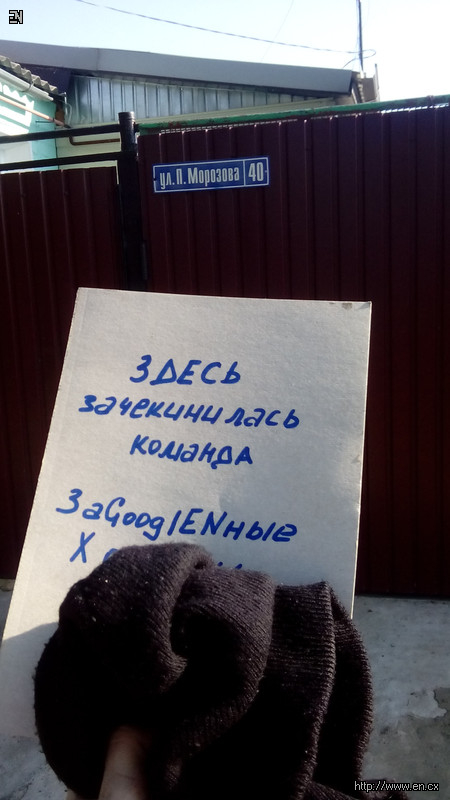 EN
ул. П. Морозова 40
ЗДЕСЬ
зачекинилась
команда
ЗаGooglENные
Х
http://www.en.cx